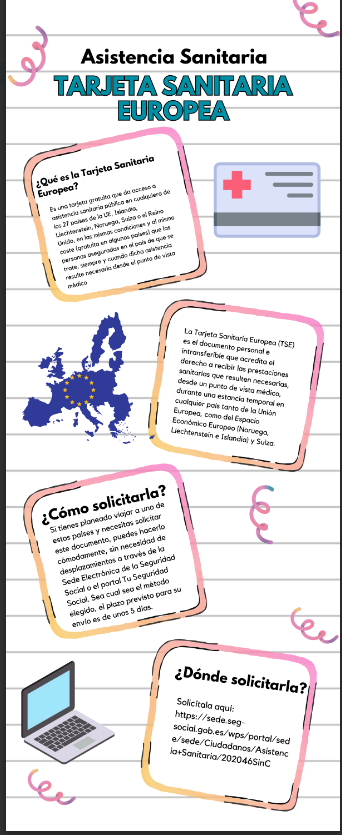 Asistencia Sanitaria
TARJETA SANITARIA
EUROPEA
¿Qué es la Tarjeta Sanitaria
Europea?
Es una tarjeta gratuita que da acceso a
asistencia sanitaria pública en cualquiera de
los 27 países de la UE, Islandia,
Liechtenstein, Noruega, Suiza o el Reino
Unido, en las mismas condiciones y al mismo
coste (gratuita en algunos países) que las
personas aseguradas en el país de que se
trate, siempre y cuando dicha asistencia
resulte necesaria desde el punto de vista
médico
La Tarjeta Sanitaria Europea (TSE)
es el documento personal e
intransferible que acredita el
derecho a recibir las prestaciones
sanitarias que resulten necesarias,
desde un punto de vista médico,
durante una estancia temporal en
cualquier país tanto de la Unión
Europea, como del Espacio
Económico Europeo (Noruega,
Liechtenstein e Islandia) y Suiza.
¿Cómo solicitarla?
Si tienes planeado viajar a uno de
estos países y necesitas solicitar
este documento, puedes hacerlo
cómodamente, sin necesidad de
desplazamientos a través de la
Sede Electrónica de la Seguridad
Social o el portal Tu Seguridad
Social. Sea cual sea el método
elegido, el plazo previsto para su
envío es de unos 5 días.
¿Dónde solicitarla?
Solicítala aquí:
https://sede.seg-
social.gob.es/wps/portal/sed
e/sede/Ciudadanos/Asistenc
ia+Sanitaria/202046SinC